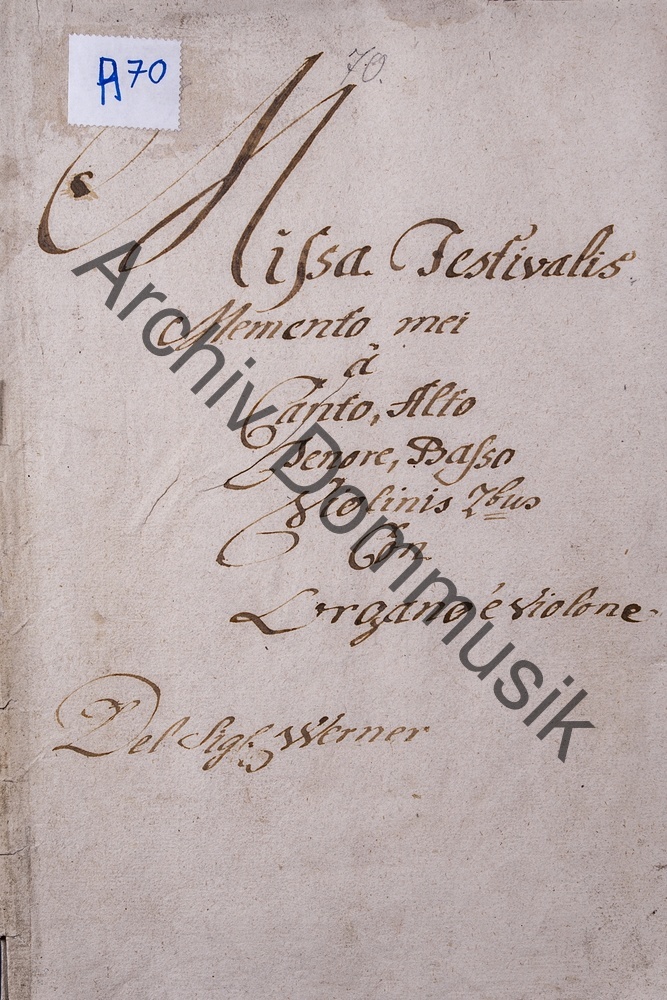 A70
70.
Missa Festivalis
Memento mei
à
Canto, Alto
Tenore, Basso
Violinis 2bus
Con
L'organo è Violone.
Del Sigr. Werner
Archiv Dommusik